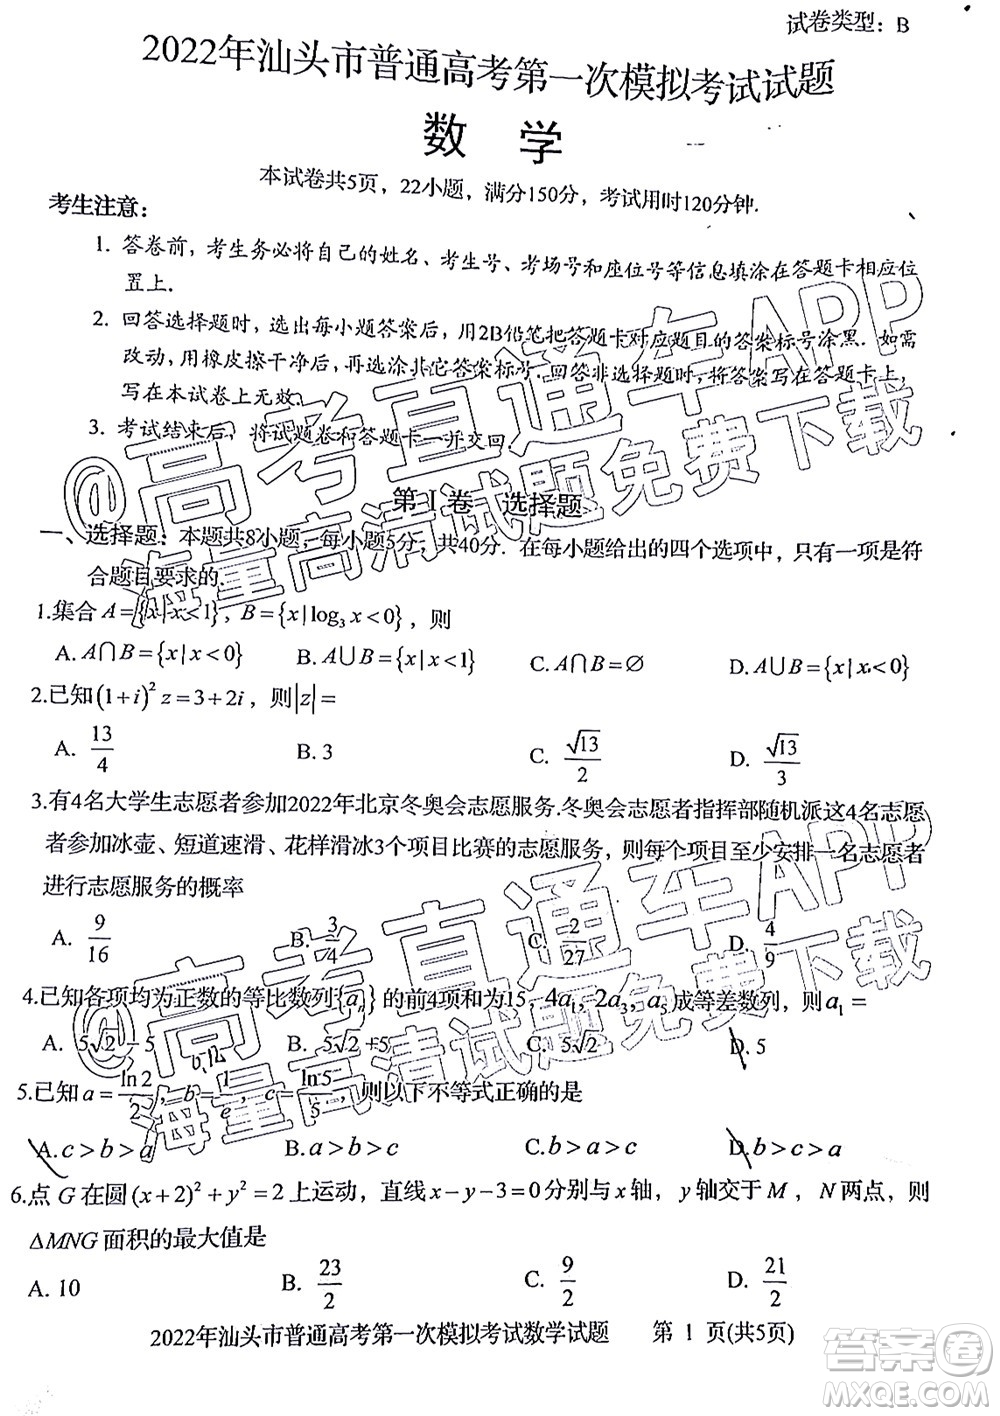 试卷类型：B
2022年汕头市普通高考第一次模拟考试试题
数 学
本试卷共5页，22小题，满分150分，考试用时120分钟.
考生注意：
1. 答卷前，考生务必将自己的姓名、考生号、考场号和座位号等信息填涂在答题卡相应位
置上.
2. 回答选择题时，选出每小题答案后，用2B铅笔把答题卡对应题目的答案标号涂黑. 如需
改动，用橡皮擦干净后，再选涂其它答案标号. 回答非选择题时，将答案写在答题卡上，
写在本试卷上无效.
3. 考试结束后，将试题卷和答题卡一并交回.
第 I 卷 选择题
一、选择题：本题共8小题，每小题5分，共40分. 在每小题给出的四个选项中，只有一项是符
合题目要求的.
1.集合 A={x|x<1}，B={x|log₃x<0}，则
A. A∩B={x|x<0} B. A∪B={x|x<1} C. A∩B=∅ D. A∪B={x|x<0}
2.已知(1+i)² z=3+2i，则|z|=
A. 13/4 B. 3 C. √13/2 D. √13/3
3.有4名大学生志愿者参加2022年北京冬奥会志愿服务.冬奥会志愿者指挥部随机派这4名志愿
者参加冰壶、短道速滑、花样滑冰3个项目比赛的志愿服务，则每个项目至少安排一名志愿者
进行志愿服务的概率
A. 9/16 B. 3/4 C. 2/27 D. 4/9
4.已知各项均为正数的等比数列{aₙ}的前4项和为15，4a₁, 2a₃, a₅成等差数列，则a₁=
A. 5√2−5 B. 5√2+5 C. 5√2 D. 5
5.已知 a=ln2/2，b=1/e，c=ln5/5，则以下不等式正确的是
A. c>b>a B. a>b>c C. b>a>c D. b>c>a
6.点 G 在圆(x+2)²+y²=2上运动，直线x−y−3=0分别与x轴，y轴交于M，N两点，则
ΔMNG面积的最大值是
A. 10 B. 23/2 C. 9/2 D. 21/2
2022年汕头市普通高考第一次模拟考试数学试题 第 1 页(共5页)
@高考直通车APP
海量高清试题免费下载
@高考直通车APP
海量高清试题免费下载
答案圈
MXQE.COM